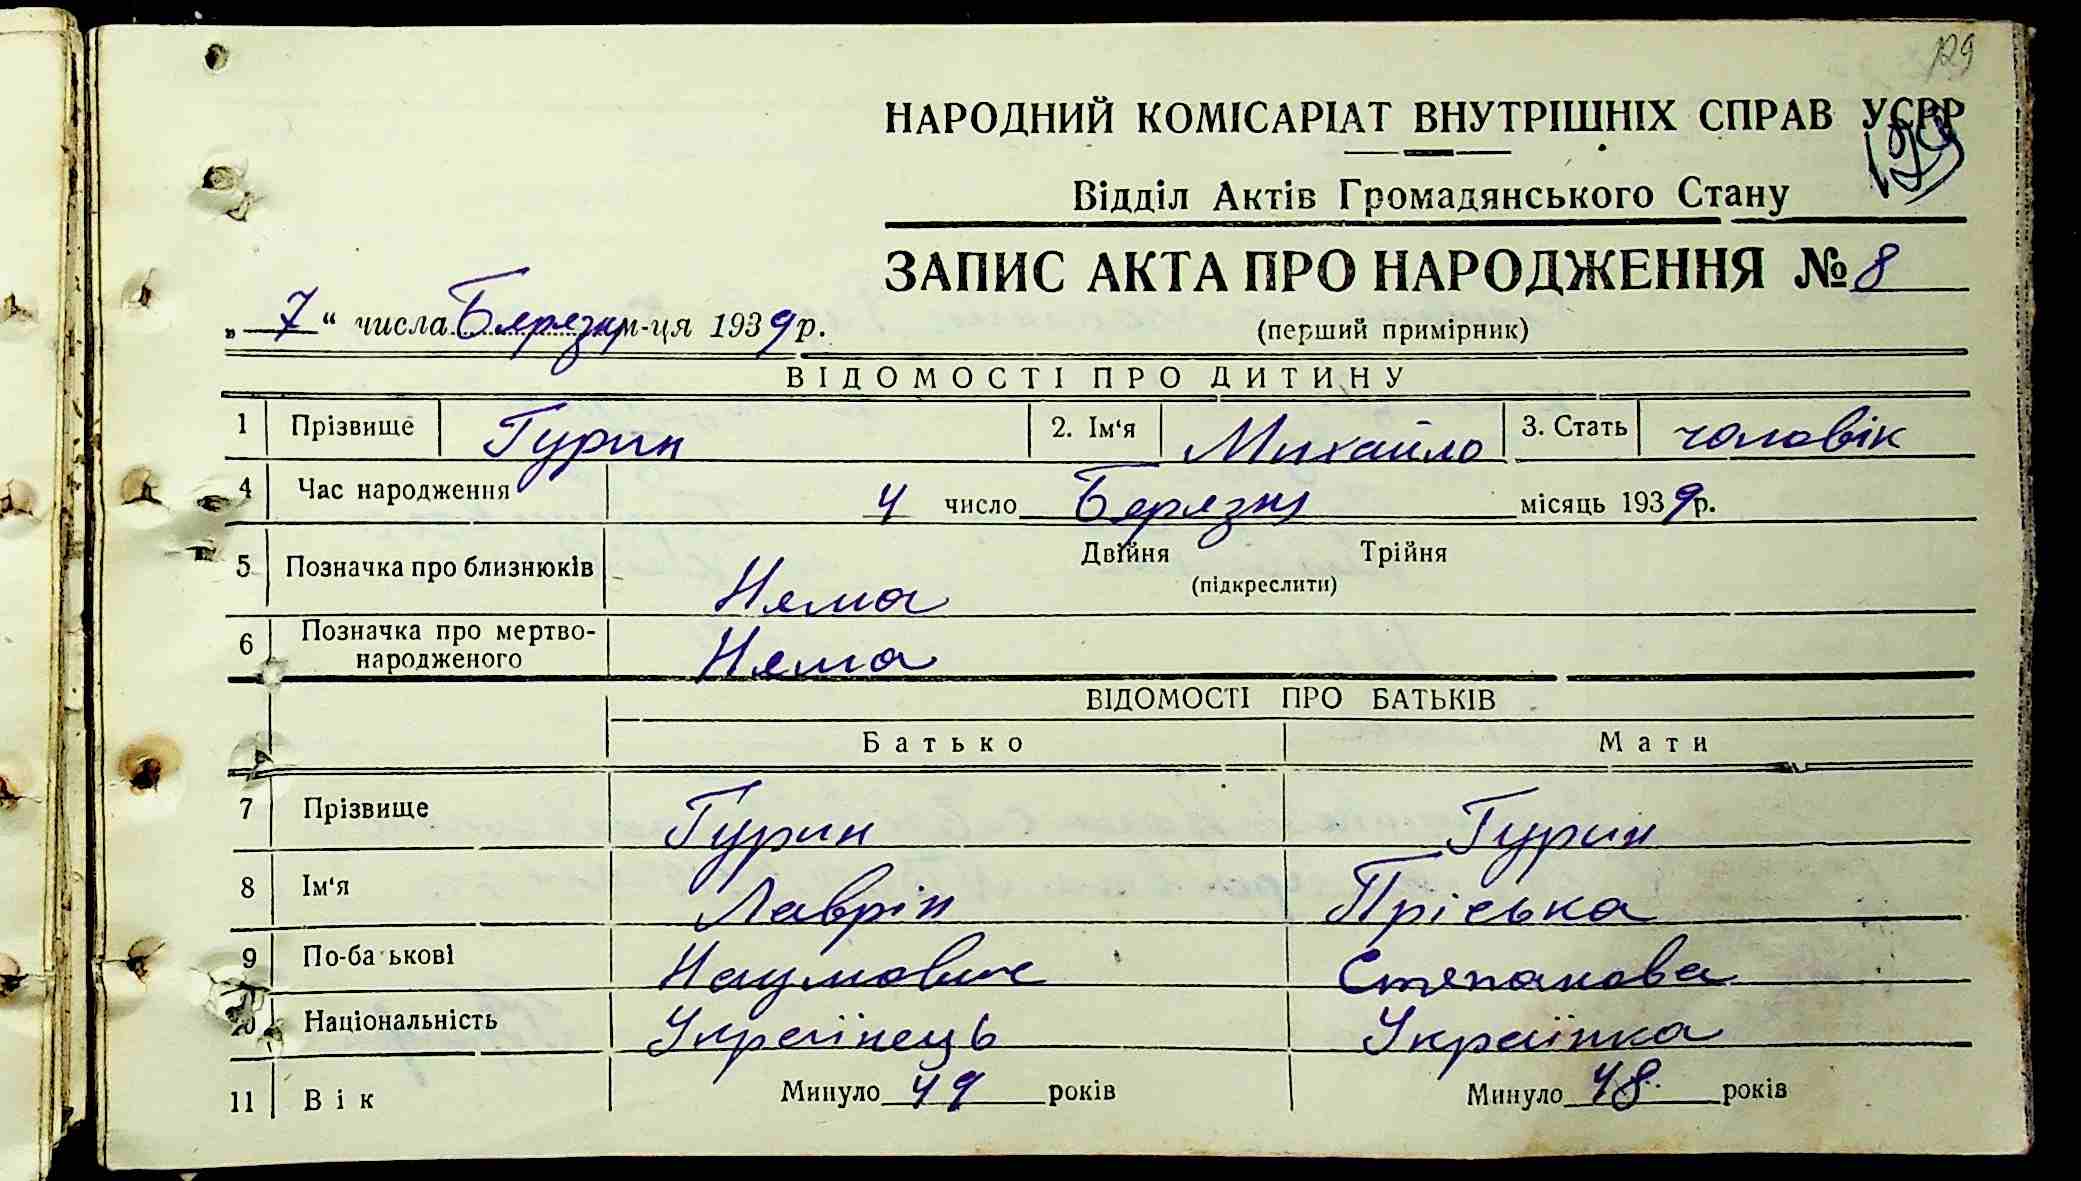 129
НАРОДНИЙ КОМІСАРІАТ ВНУТРІШНІХ СПРАВ УСРР
129
Відділ Актів Громадянського Стану
ЗАПИС АКТА ПРО НАРОДЖЕННЯ № 8
„ 7 “ числа Березня м-ця 1939 р.
(перший примірник)
ВІДОМОСТІ ПРО ДИТИНУ
1 Прізвище Гурин 2. Ім‘я Михайло 3. Стать чоловік
4 Час народження 4 число Березня місяць 1939 р.
5 Позначка про близнюків Нема Двійня Трійня
(підкреслити)
6 Позначка про мертво-
народженого Нема
ВІДОМОСТІ ПРО БАТЬКІВ
Батько Мати
7 Прізвище Гурин Гурин
8 Ім‘я Лаврін Пріська
9 По-ба ькові Наумович Степанова
10 Національність Українець Українка
11 Вік Минуло 49 років Минуло 48 років